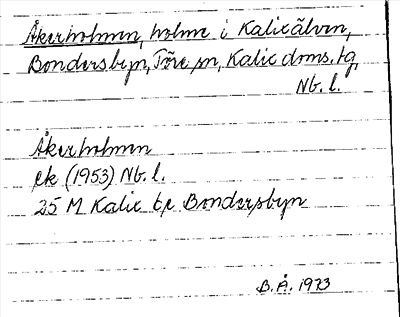 Åkerholmen, holme i Kalixälven,
Bondersbyn, Töre sn, Kalix doms. tg,
Nb. l.
Åkerholmen
ek (1953) Nb. l.
25 M Kalix bc Bondersbyn
B.Å. 1973